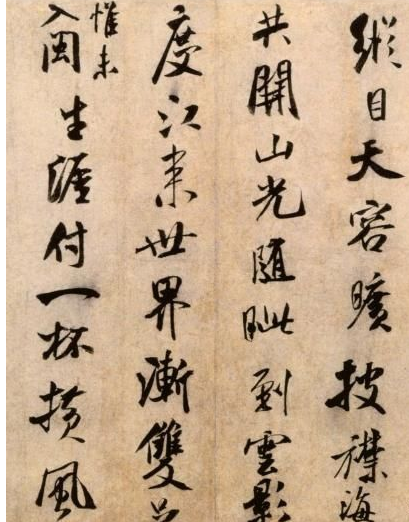 縱目天容曠披襟海
共開山光隨眦到雲影
度江来世界漸雙足
惟未
入閩
生涯付一杯横風